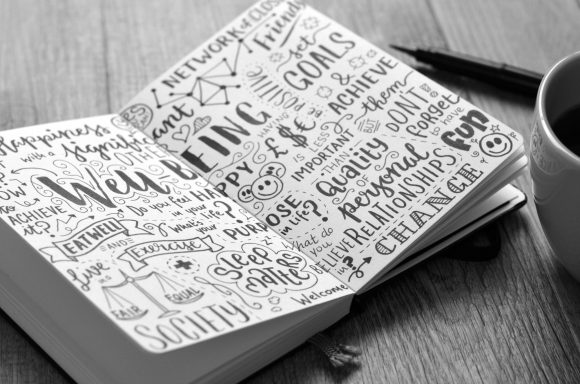 Happiness
with a
significant
OTHER
NETWORK of CLOSE
Friends
set
GOALS
&
ACHIEVE
them
BUT
DON'T
forget
to HAVE
fun
HOW
to
ACHIEVE
it?
Well BEING
HAVING
£ $ €
IS LESS
IMPORTANT
THAN
Quality
OF
personal
RELATIONSHIPS
CHANGE
Do you feel
in your
What's
life?
PURPOSE
in life?
What do
you
BELIEVE
in?
EAT WELL
AND
Exercise
Live in
FAIR
EQUAL
SOCIETY
Sleep
matters
Welcome